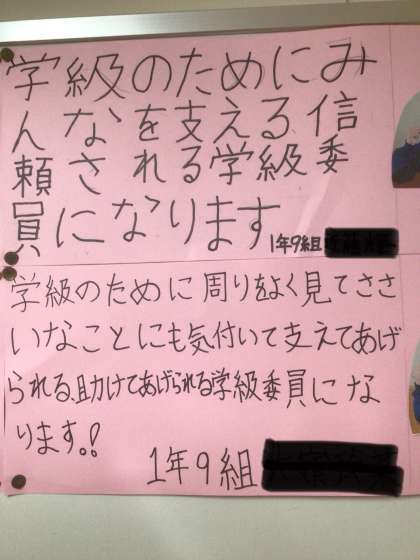 学級のためにみ
んなを支える信
頼される学級委
員になります
1年9組
学級のために周りをよく見てささ
いなことにも気付いて支えてあげ
られる、助けてあげられる学級委員にな
ります!!
1年9組